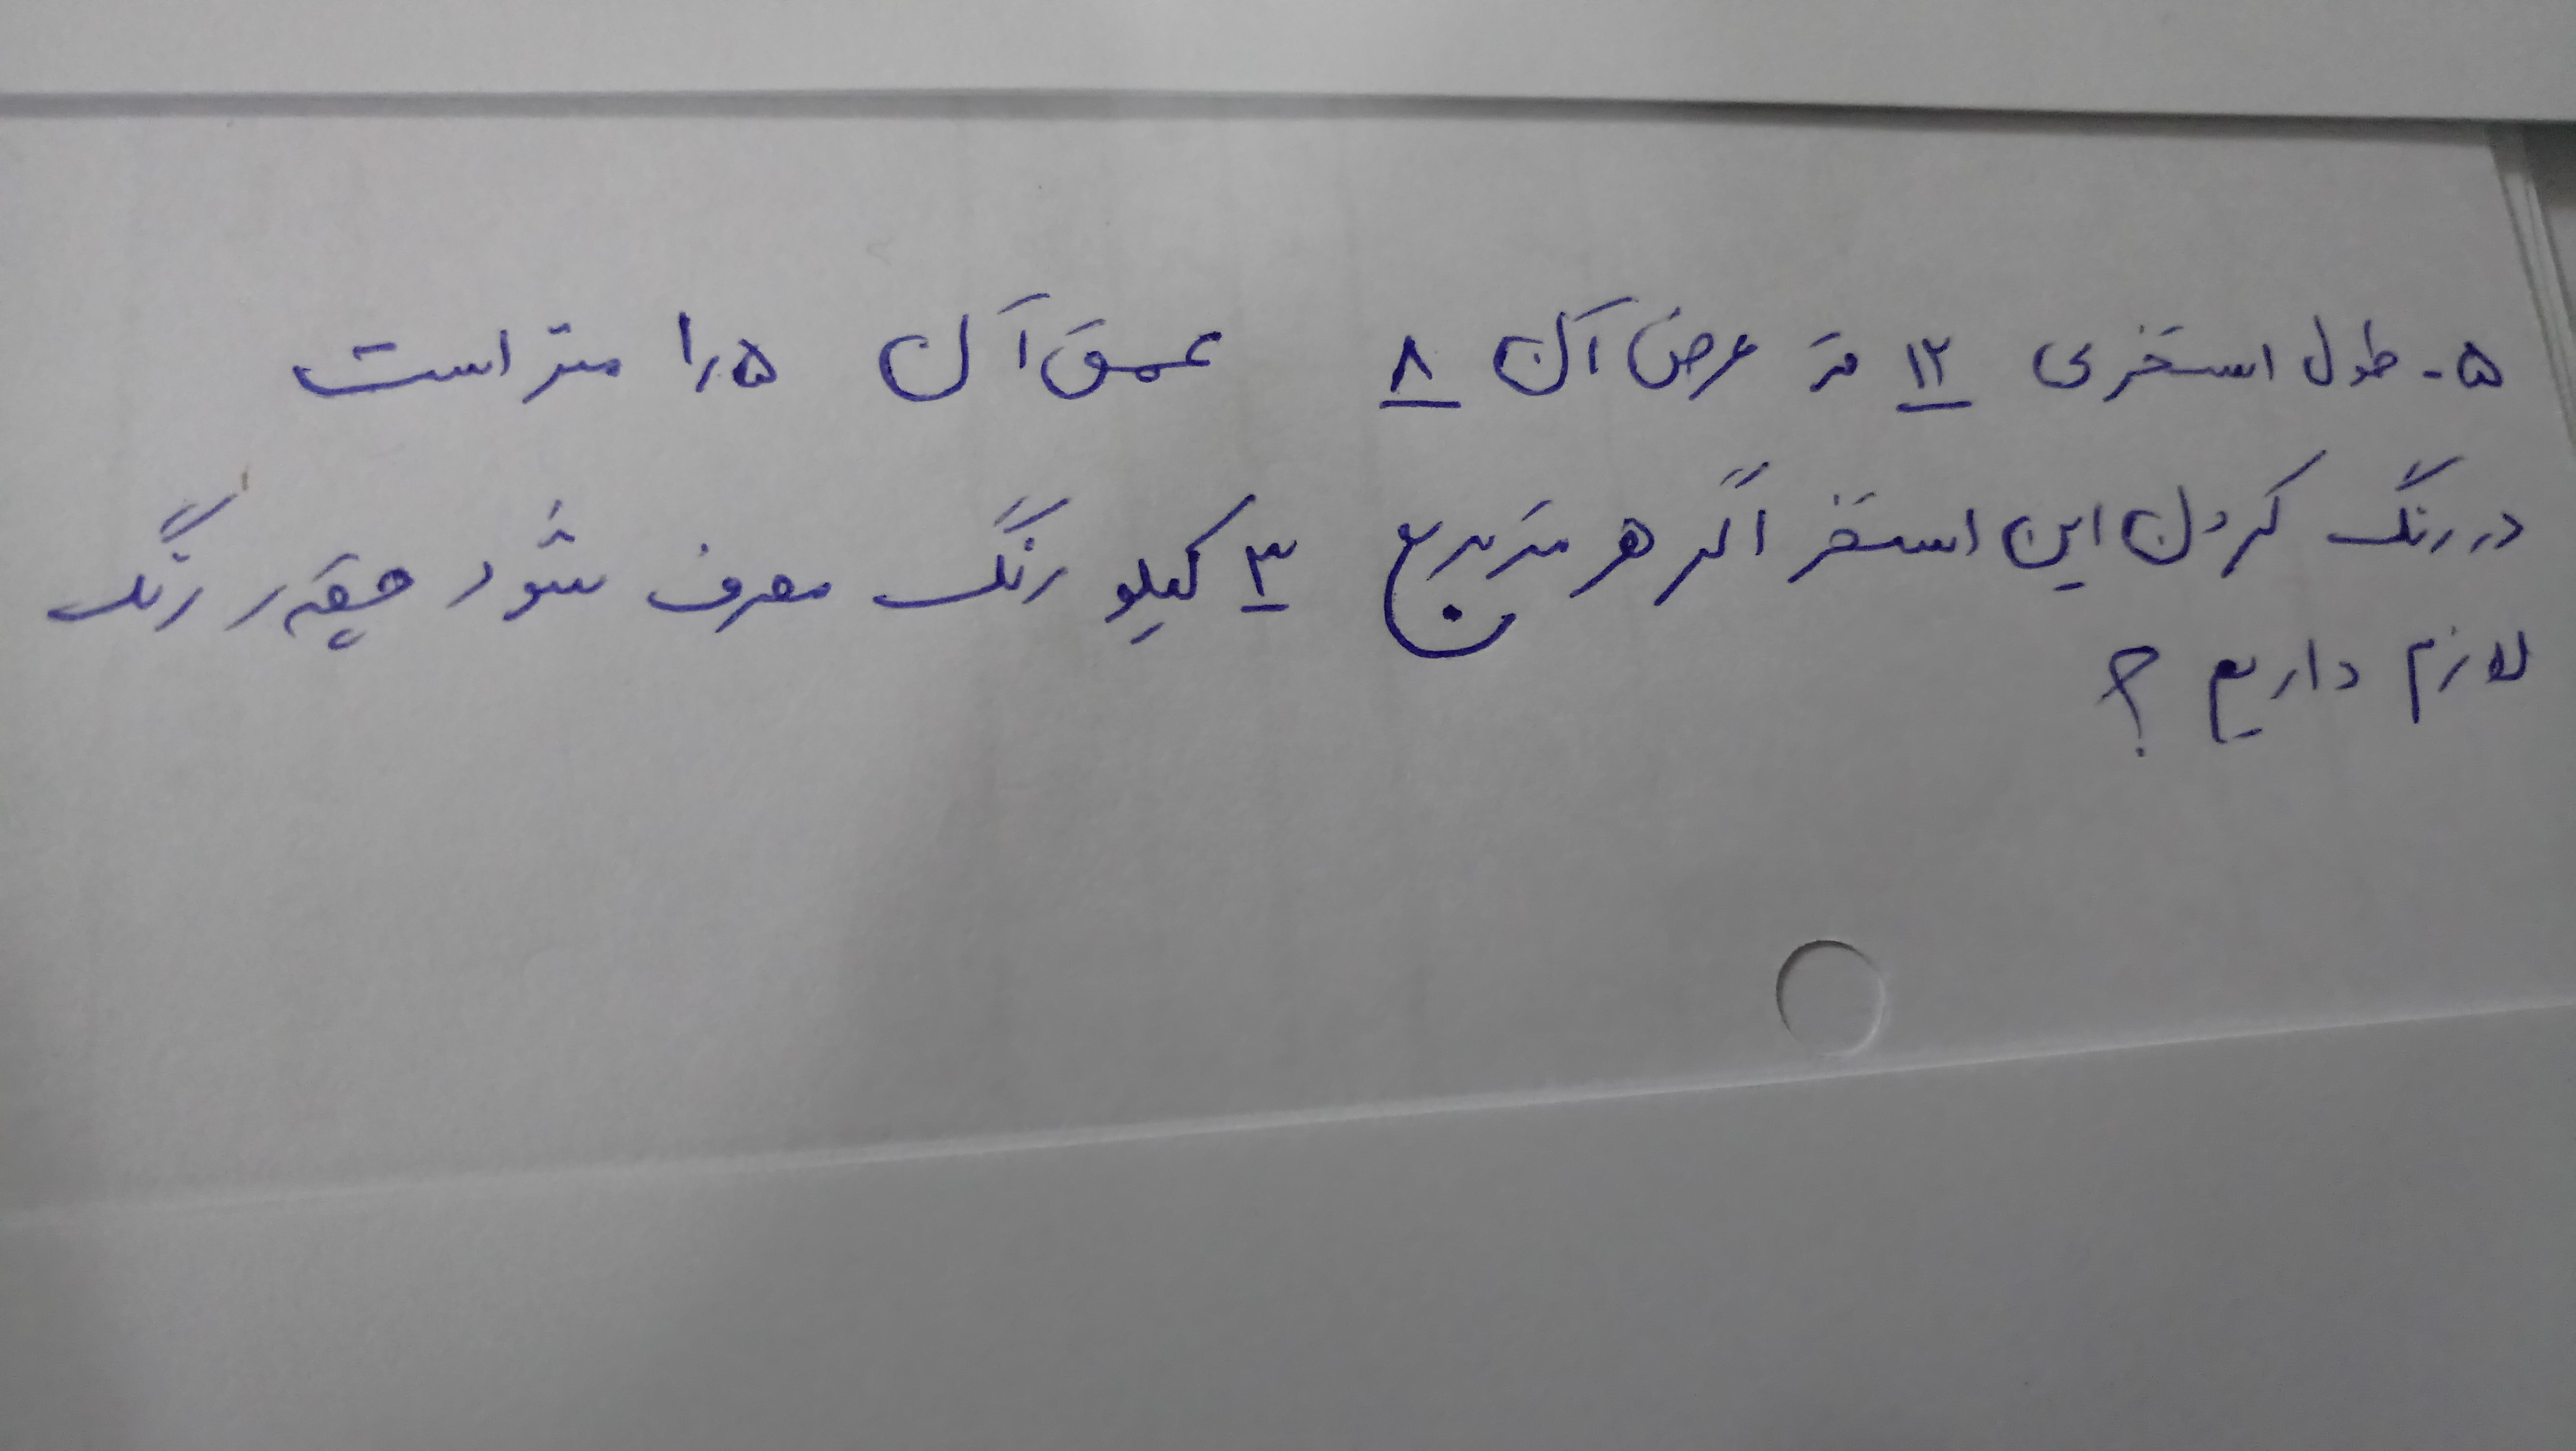 ۵- طول استخری ۱۲ متر عرض آن ۸ عمق آن ۱٫۵ متر است
در رنگ کردن این استخر اگر هر متر مربع ۳ کیلو رنگ مصرف شود چقدر رنگ
لازم داریم ؟